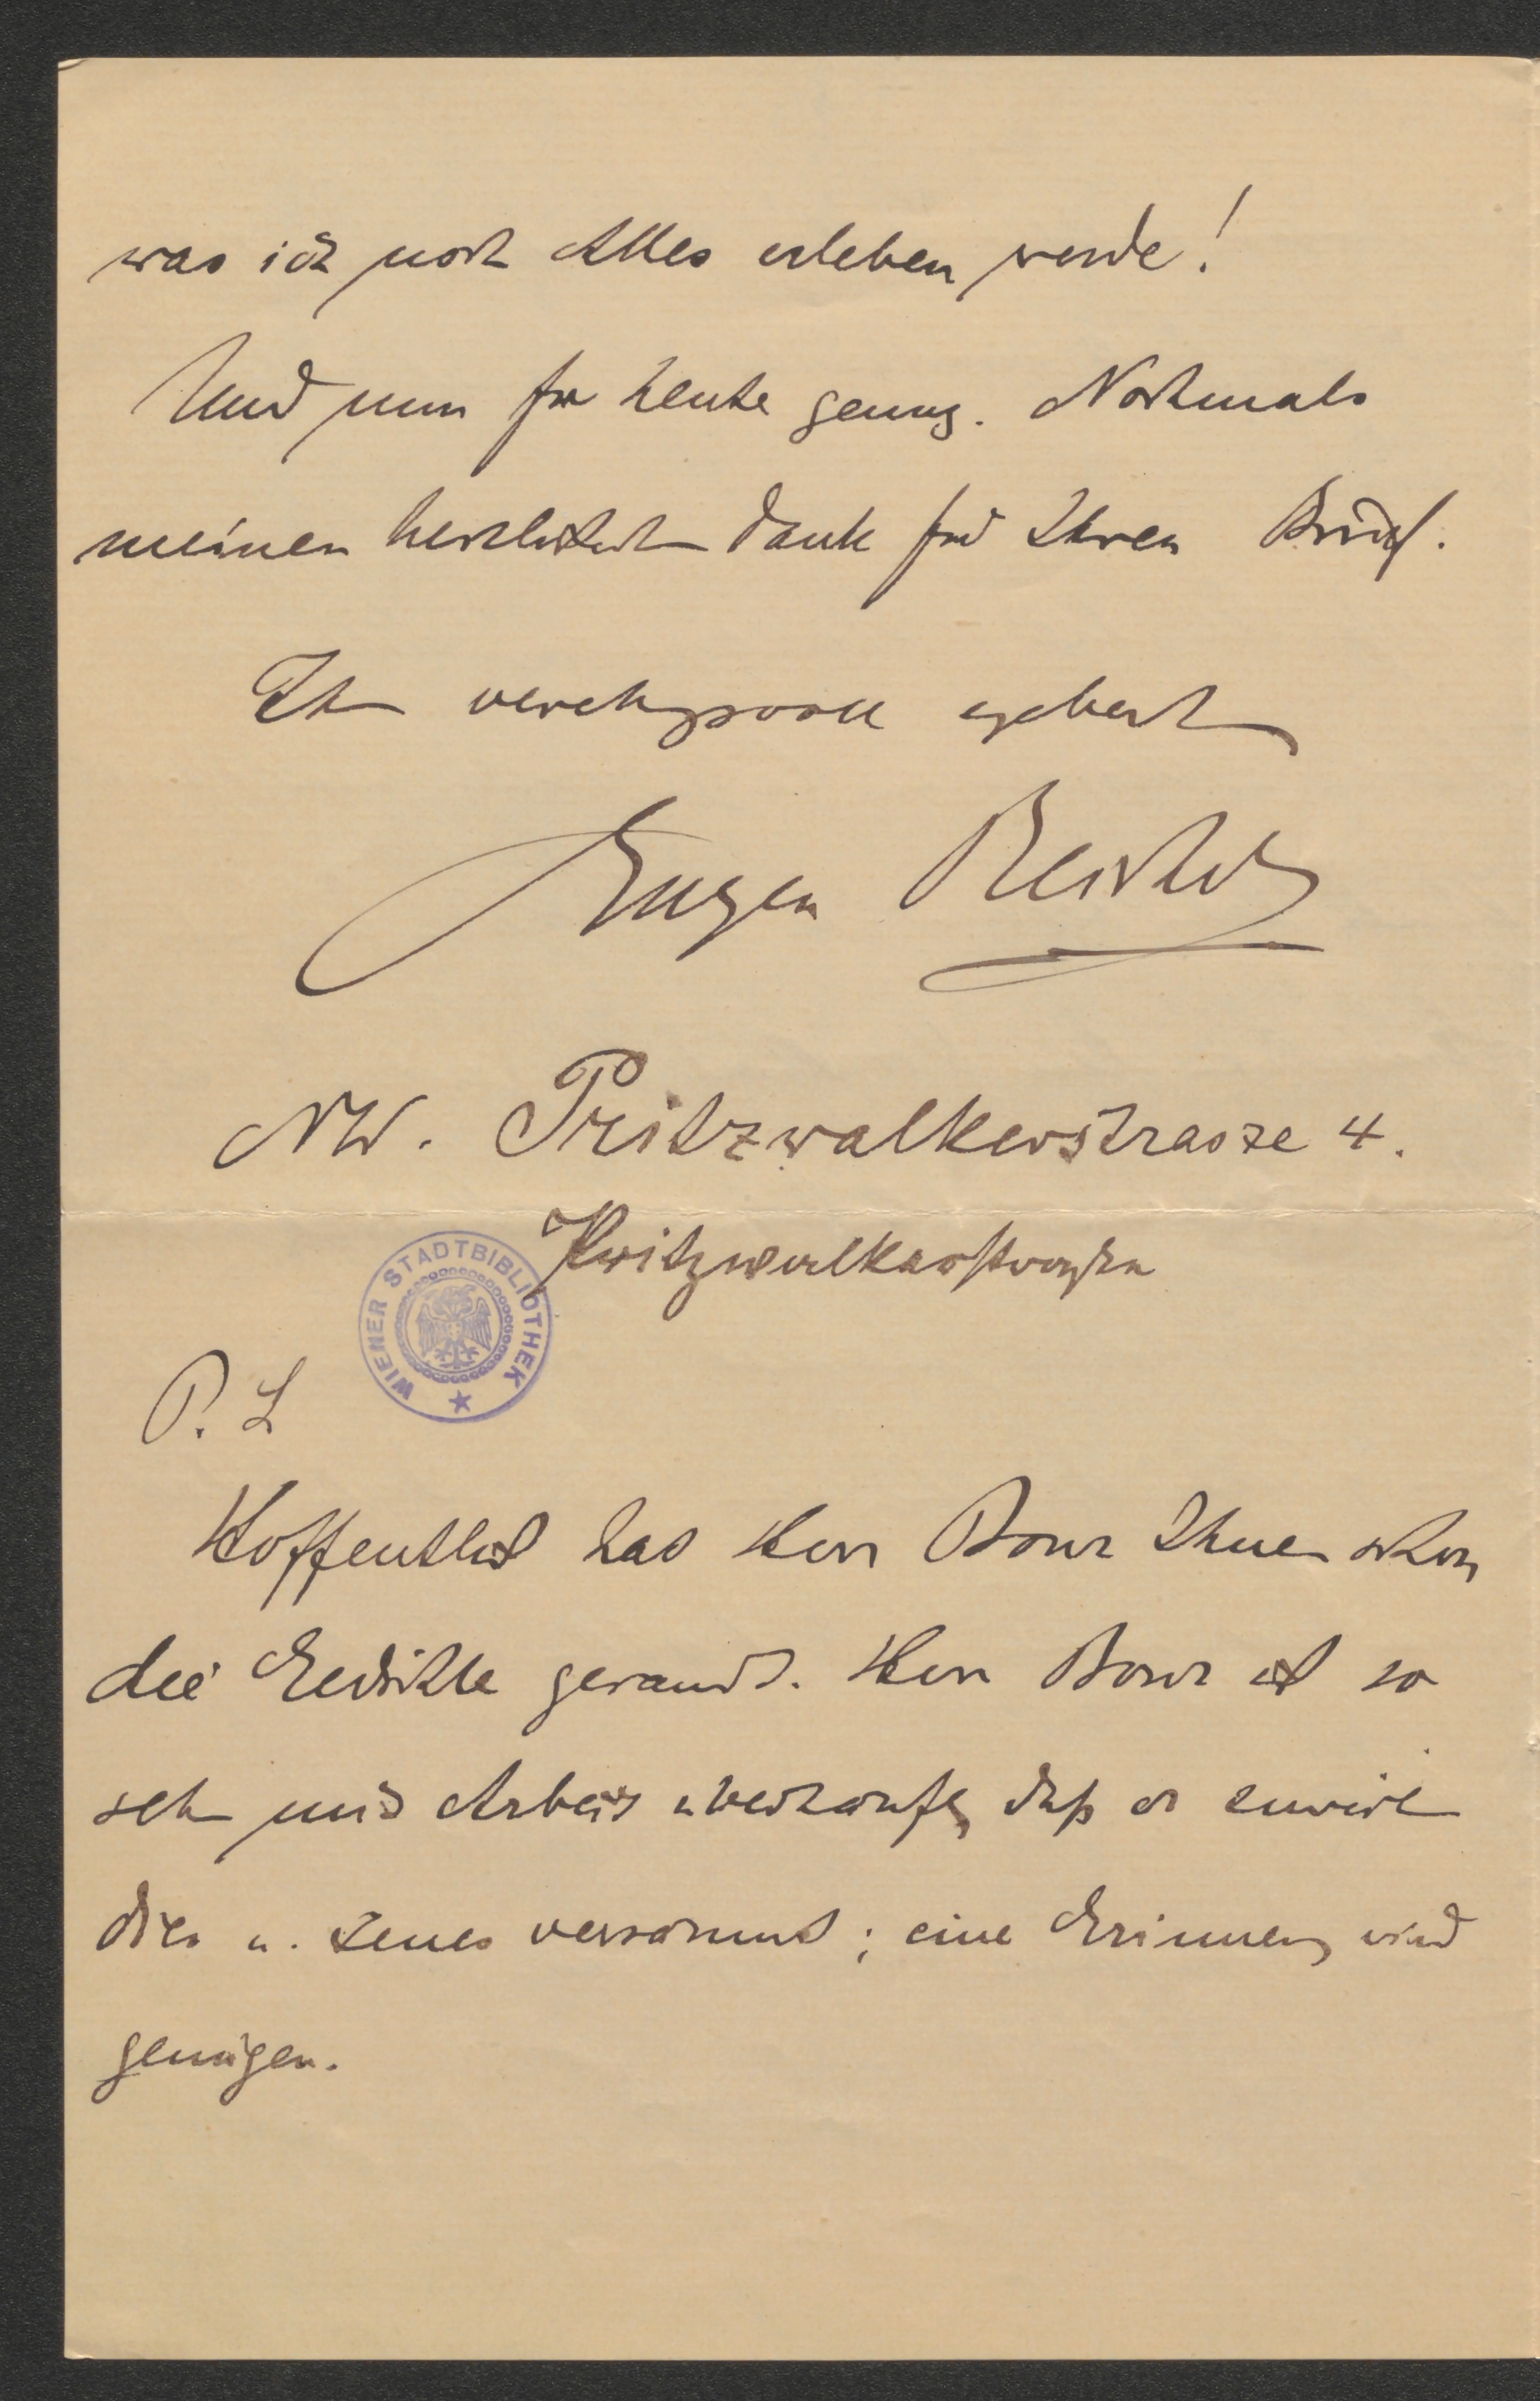 was ich noch Alles erleben werde!
Und nun für heute genug. Nochmals
meinen herzlichsten Dank für Ihren Brief.
Ihr verehrungsvoll ergebenster
Eugen Reichel
NW. Pritzwalkerstrasse 4.
Pritzwalkerstraße
WIENER STADTBIBLIOTHEK
P. S
Hoffentlich hat Herr Bonz Ihnen schon
die Gedichte gesandt. Herr Bonz ist so
sehr mit Arbeit überhäuft, daß er zuweilen
dies u. jenes versäumt; eine Erinnerung wird
genügen.